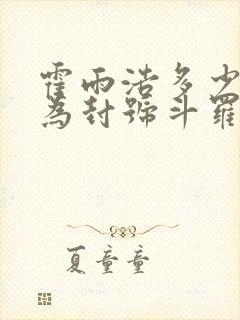 霍雨浩多少
為封號斗羅
夏童童